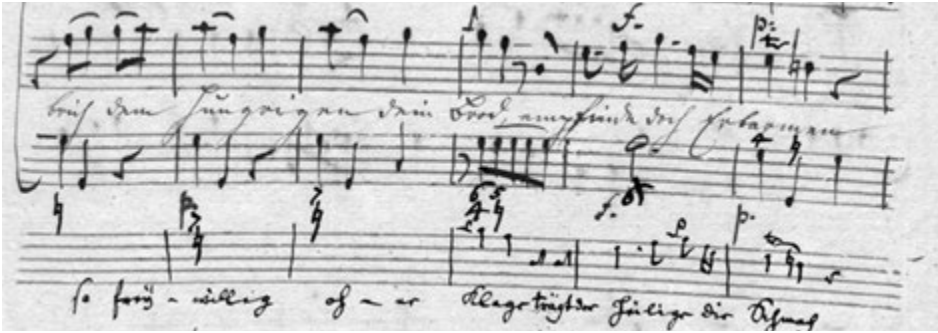 brich dem Hungrigen dein Brod, empfinde doch Erbarmen
so freÿ - willig oh - ne Klage trägt der Heilige die Schmach